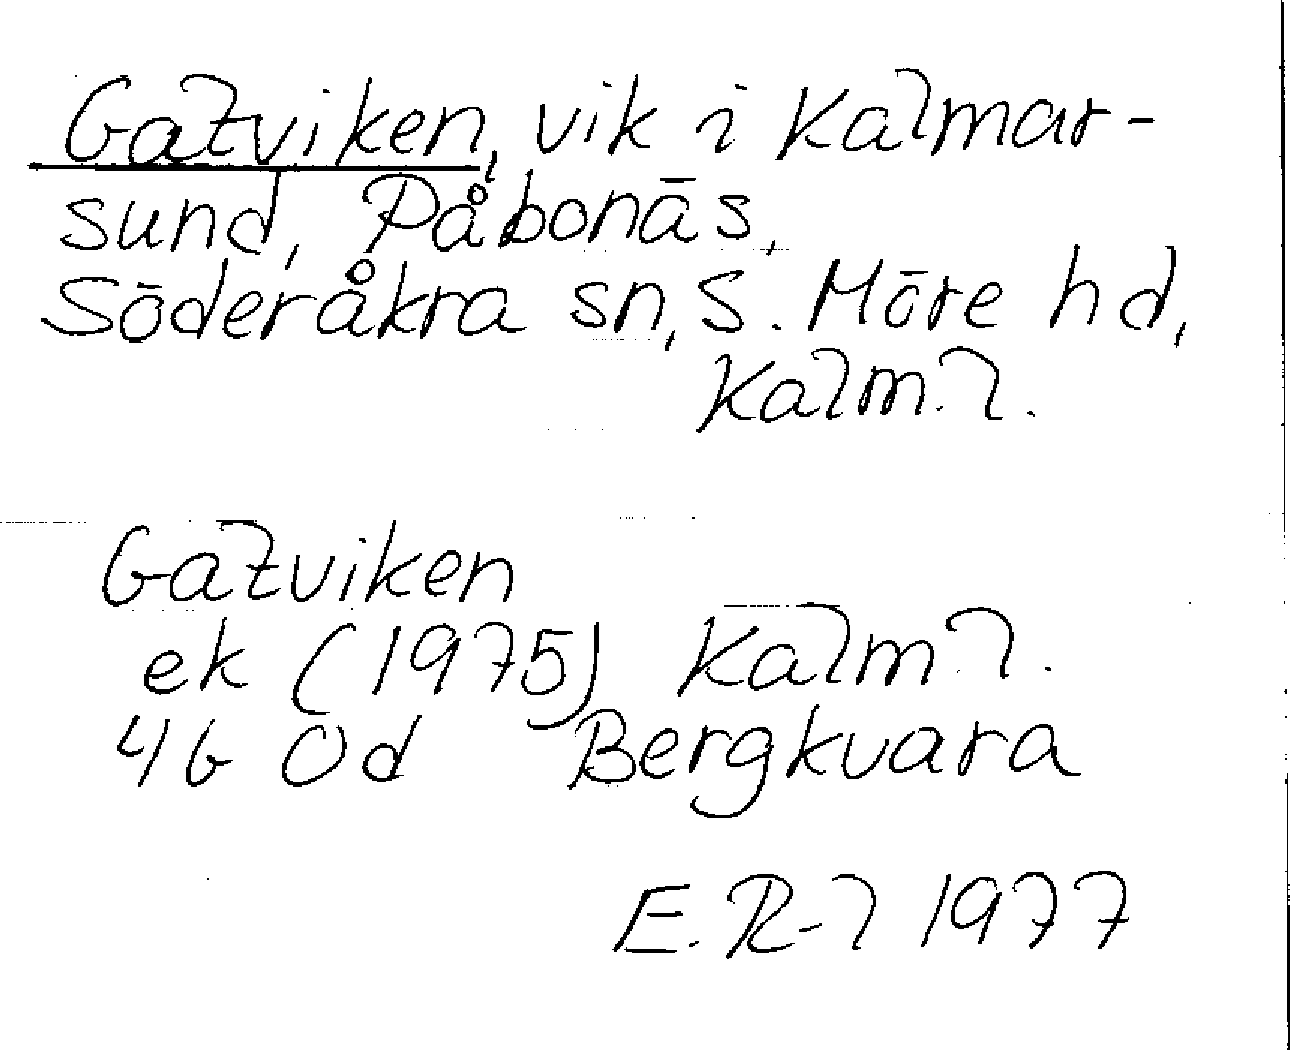 Gatviken, vik i Kalmar-
sund, Påbonäs,
Söderåkra sn, S. Möre hd,
Kalm. l.
Gatviken
ek (1975) Kalm. l.
4G 0d Bergkvara
E. R-l 1977